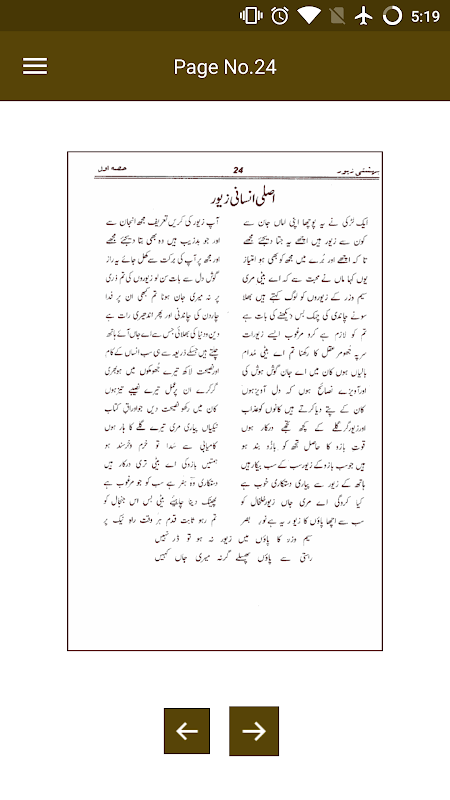 5:19
Page No.24
بہشتی زیور 24 حصہ اول
اصلی انسانی زیور
ایک لڑکی نے یہ پوچھا اپنی اماں جان سے آپ زیور کی کریں تعریف مجھ انجان سے
کون سے زیور ہیں اچھے یہ جتا دیجئے مجھے اور جو بدزیب ہیں وہ بھی بتا دیجئے مجھے
تا کہ اچھے اور برے میں مجھ کو بھی ہو امتیاز اور مجھ پر آپ کی برکت سے کھل جائے یہ راز
یوں کہا ماں نے محبت سے کہ اے بیٹی مری گوش دل سے بات سن لو زیوروں کی تم ذری
سیم وزر کے زیوروں کو لوگ کہتے ہیں بھلا پر نہ میری جان ہونا تم کبھی ان پر فدا
سونے چاندی کی چمک بس دیکھنے کی بات ہے چار دن کی چاندنی اور پھر اندھیری رات ہے
تم کو لازم ہے کرو مرغوب ایسے زیورات دین و دنیا کی بھلائی جس سے اے جاں آئے ہاتھ
سر پہ جھومر عقل کا رکھنا تم اے بیٹی مدام چلتے ہیں جسکے ذریعہ سے ہی سب انساں کے کام
بالیاں ہوں کان میں اے جان گوش ہوش کی اور نصیحت لاکھ تیرے جھومکوں میں ہو بھری
اور آویزے نصائح ہوں کہ دل آویز ہوں گر کرے ان پر عمل تیرے نصیبے تیز ہوں
کان کے پتے دیا کرتے ہیں کانوں کو عذاب کان میں رکھو نصیحت دیں جو اوراق کتاب
اور زیور گر گلے کے کچھ تجھے درکار ہوں نیکیاں پیاری مری تیرے گلے کا ہار ہوں
قوت بازو کا حاصل تجھ کو بازو بند ہو کامیابی سے سدا تو خرم و خرسند ہو
ہیں جو سب بازو کے زیور سب کے سب بیکار ہیں ہمتیں بازو کی اے بیٹی تری درکار ہیں
ہاتھ کے زیور سے پیاری دستکاری خوب ہے دستکاری وہ ہنر ہے سب کو جو مرغوب ہے
کیا کروگی اے مری جاں زیور خلخال کو پھینک دینا چاہئے بیٹی بس اس جنجال کو
سب سے اچھا پاؤں کا زیور یہ ہے نور بصر تم رہو ثابت قدم ہر وقت راہ نیک پر
سیم وزر کا پاؤں میں زیور نہ ہو تو ڈر نہیں
راستی سے پاؤں پھسلے گر نہ میری جاں کہیں